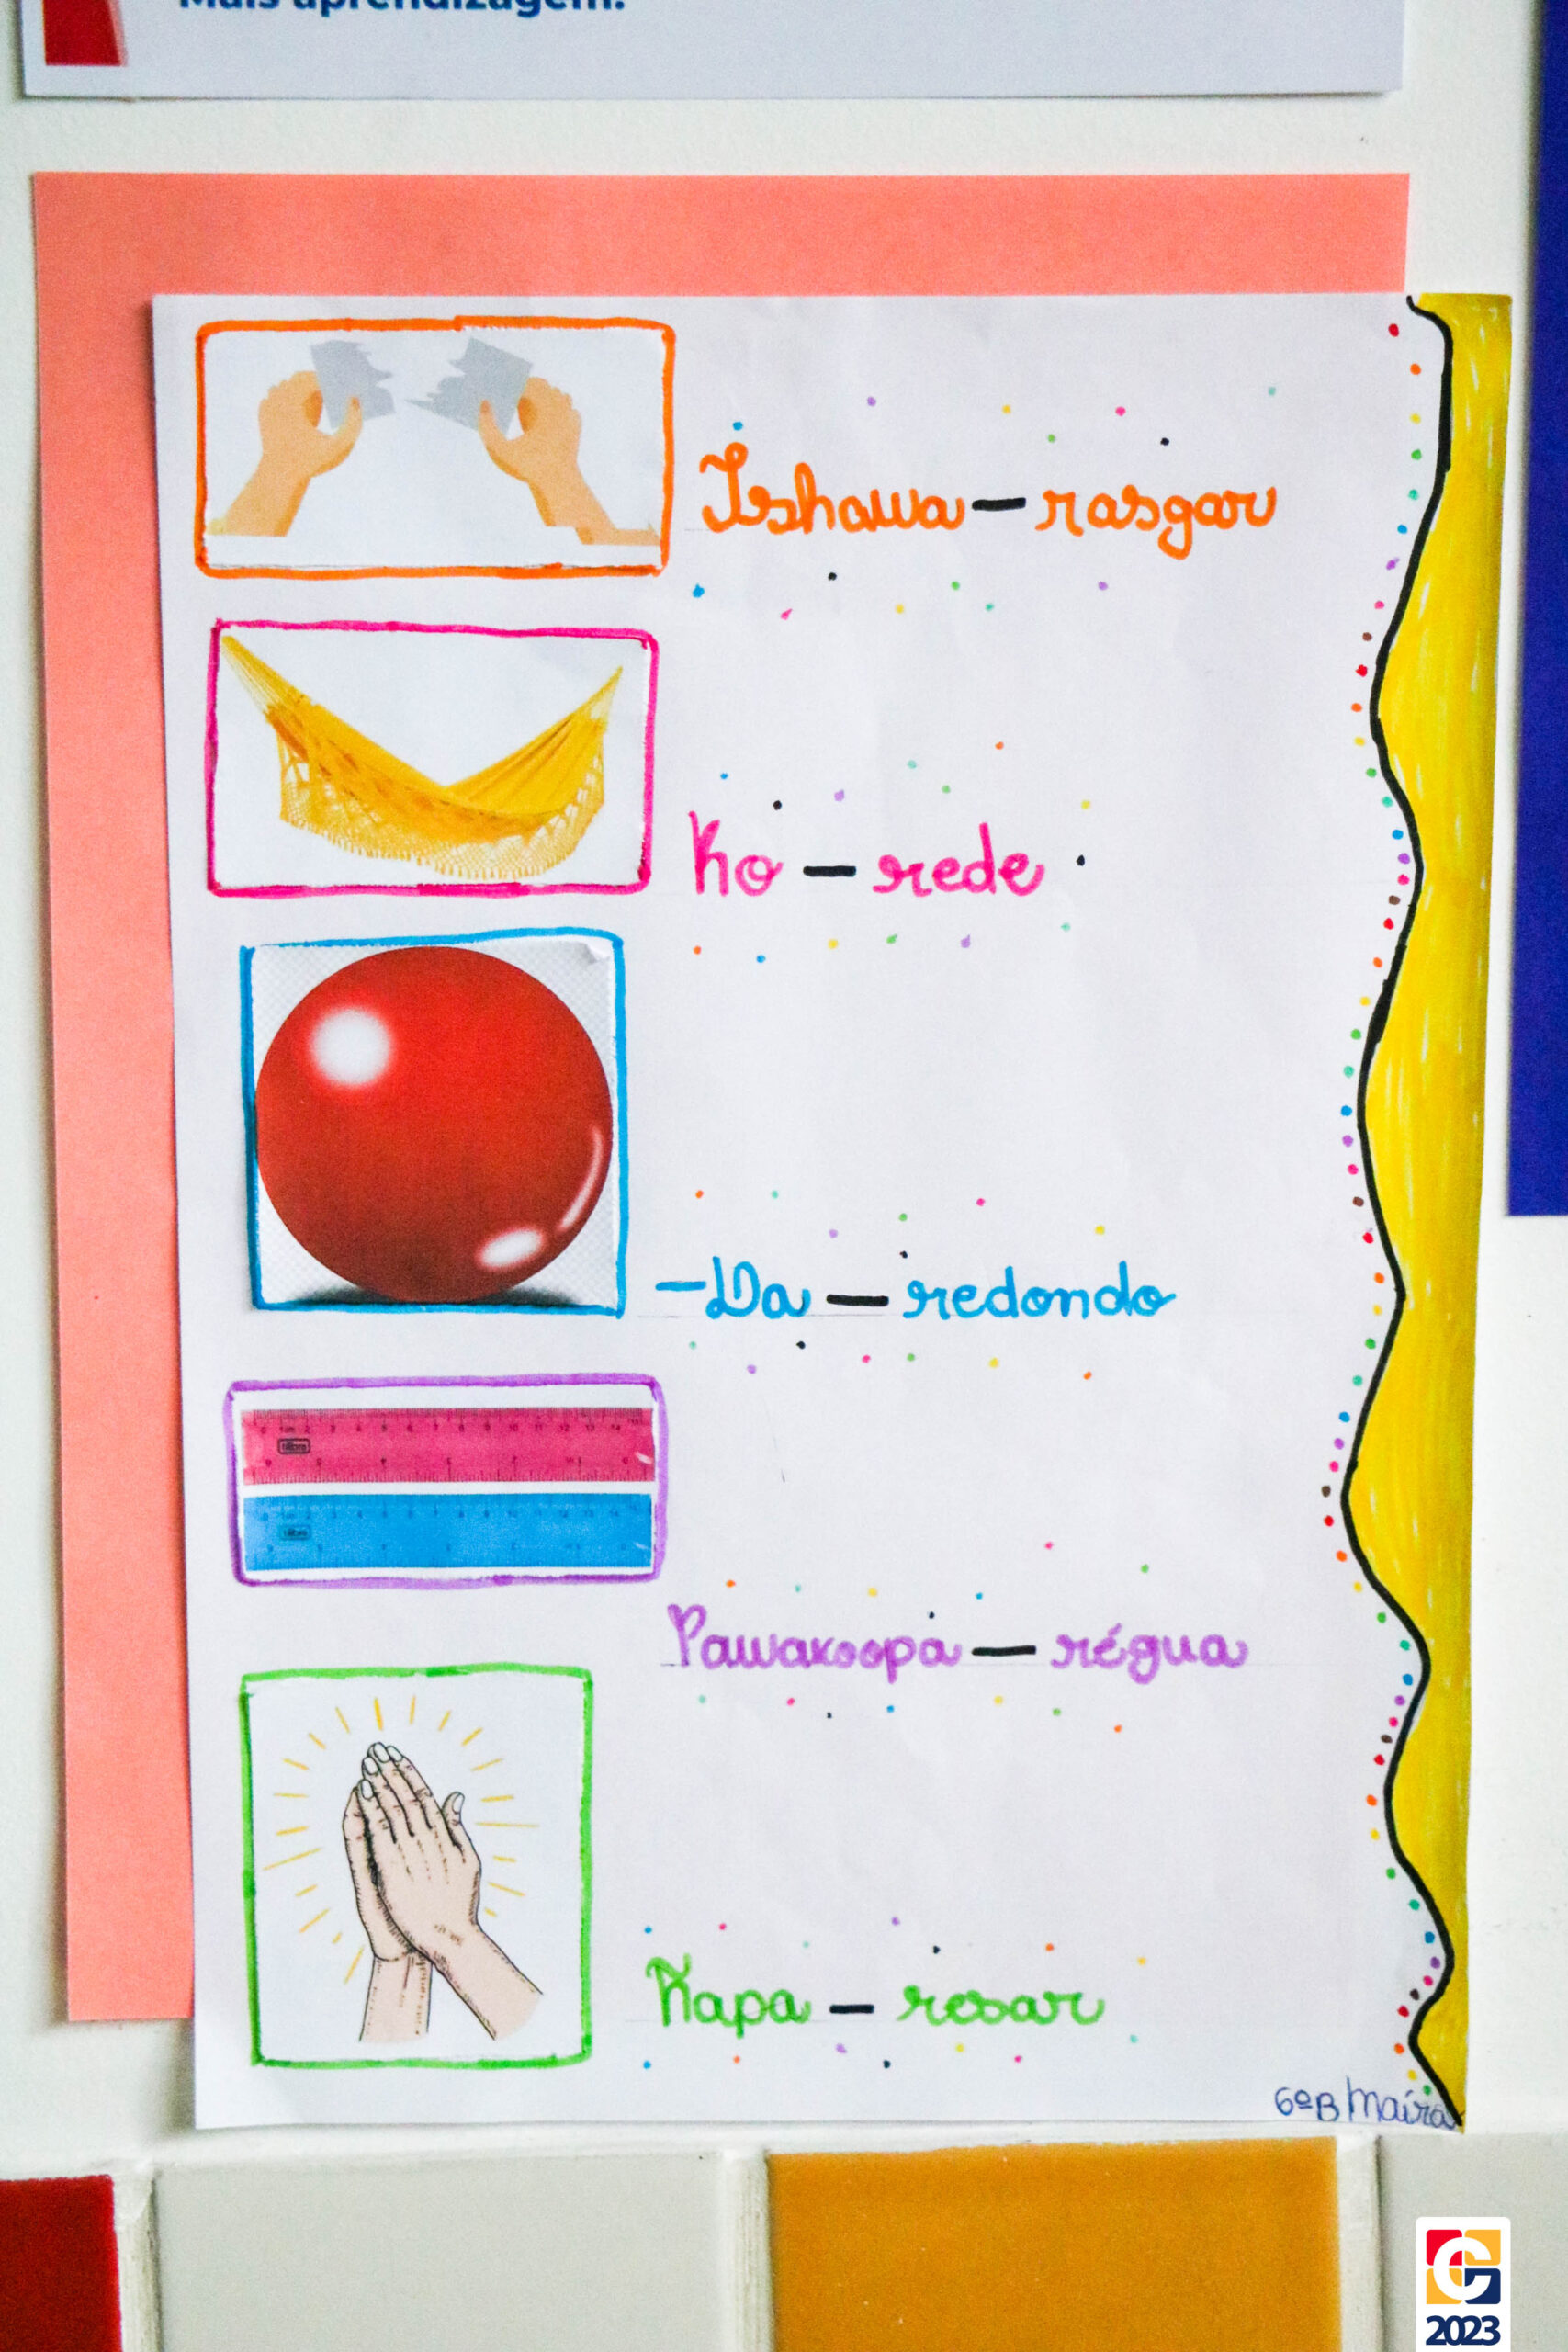 Mais aprendizagem.
Ishawa — rasgar
Ko — rede
-Da — redondo
Pawakoopa — régua
Kapa — resar
6ºB Maíra
2023